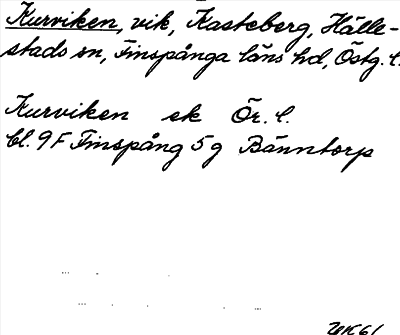 Kurviken, vik, Kasteberg, Hälle-
stads sn, Finspånga läns hd, Östg. l.
Kurviken ek Ör. l.
bl. 9F Finspång 5g Bänntorp